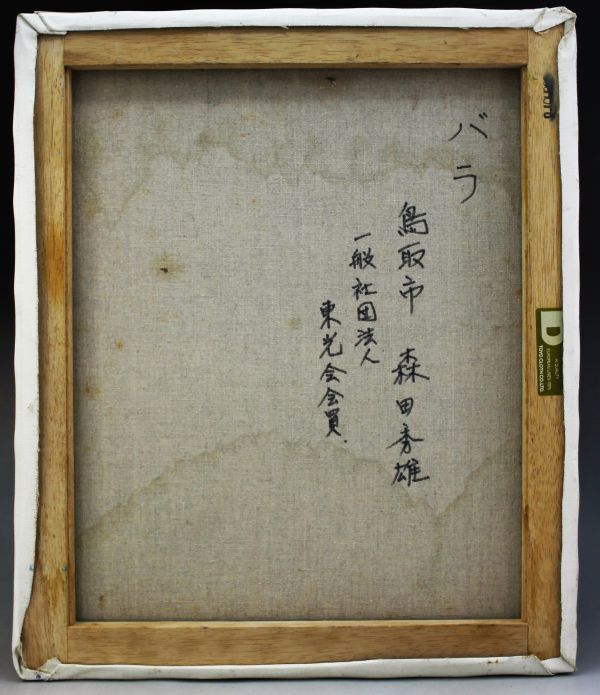 バラ
鳥取市 森田秀雄
一般社団法人
東光会会員
D
TOYO CLOTH CO.,LTD.